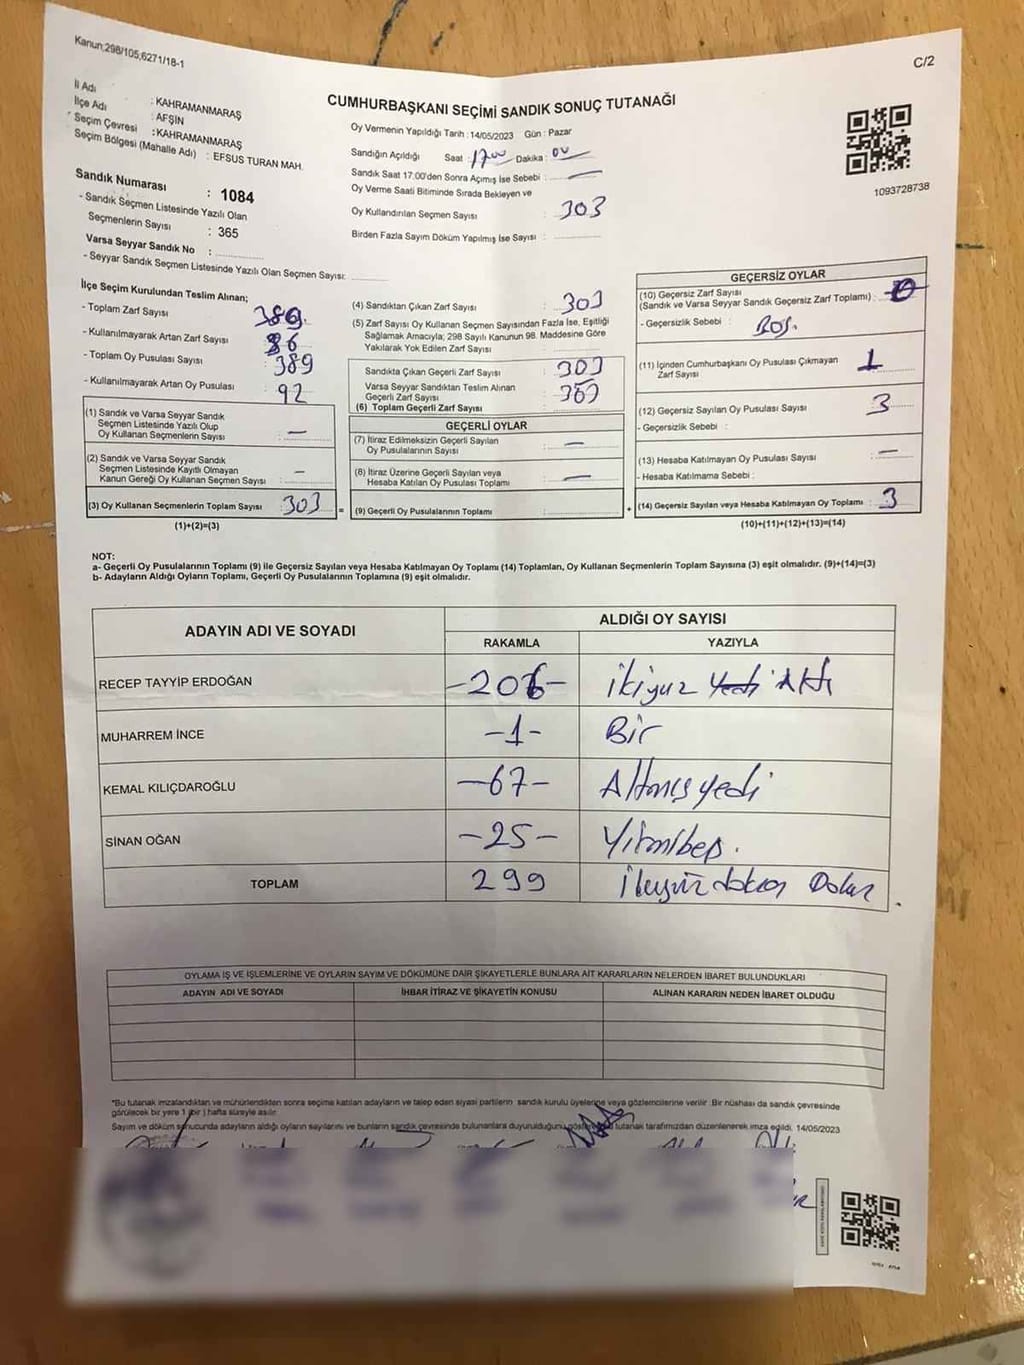 Kanun;298/105,6271/18-1
C/2
CUMHURBAŞKANI SEÇİMİ SANDIK SONUÇ TUTANAĞI
İl Adı : KAHRAMANMARAŞ
İlçe Adı : AFŞİN
Seçim Çevresi : KAHRAMANMARAŞ
Seçim Bölgesi (Mahalle Adı) : EFSUS TURAN MAH.
Sandık Numarası : 1084
- Sandık Seçmen Listesinde Yazılı Olan
Seçmenlerin Sayısı : 365
Varsa Seyyar Sandık No :
- Seyyar Sandık Seçmen Listesinde Yazılı Olan Seçmen Sayısı:
Oy Vermenin Yapıldığı Tarih : 14/05/2023 Gün : Pazar
Sandığın Açıldığı Saat : 17:00 Dakika : 00
Sandık Saat 17.00'den Sonra Açımış İse Sebebi : —
Oy Verme Saati Bitiminde Sırada Bekleyen ve
Oy Kullandırılan Seçmen Sayısı : 303
Birden Fazla Sayım Döküm Yapılmış İse Sayısı :
1093728738
İlçe Seçim Kurulundan Teslim Alınan;
- Toplam Zarf Sayısı 389
- Kullanılmayarak Artan Zarf Sayısı 86
- Toplam Oy Pusulası Sayısı 389
- Kullanılmayarak Artan Oy Pusulası 92
(1) Sandık ve Varsa Seyyar Sandık
Seçmen Listesinde Yazılı Olup
Oy Kullanan Seçmenlerin Sayısı : —
(2) Sandık ve Varsa Seyyar Sandık
Seçmen Listesinde Kayıtlı Olmayan
Kanun Gereği Oy Kullanan Seçmen Sayısı : —
(3) Oy Kullanan Seçmenlerin Toplam Sayısı : 303 =
(1)+(2)=(3)
(4) Sandıktan Çıkan Zarf Sayısı : 303
(5) Zarf Sayısı Oy Kullanan Seçmen Sayısından Fazla İse, Eşitliği
Sağlamak Amacıyla; 298 Sayılı Kanunun 98. Maddesine Göre
Yakılarak Yok Edilen Zarf Sayısı :
Sandıkta Çıkan Geçerli Zarf Sayısı : 303
Varsa Seyyar Sandıktan Teslim Alınan
Geçerli Zarf Sayısı :
(6) Toplam Geçerli Zarf Sayısı :
GEÇERLİ OYLAR
(7) İtiraz Edilmeksizin Geçerli Sayılan
Oy Pusulalarının Sayısı : —
(8) İtiraz Üzerine Geçerli Sayılan veya
Hesaba Katılan Oy Pusulası Toplamı : —
(9) Geçerli Oy Pusulalarının Toplamı : +
GEÇERSİZ OYLAR
(10) Geçersiz Zarf Sayısı
(Sandık ve Varsa Seyyar Sandık Geçersiz Zarf Toplamı) : 0
- Geçersizlik Sebebi :
(11) İçinden Cumhurbaşkanı Oy Pusulası Çıkmayan
Zarf Sayısı : 1
(12) Geçersiz Sayılan Oy Pusulası Sayısı : 3
- Geçersizlik Sebebi :
(13) Hesaba Katılmayan Oy Pusulası Sayısı : —
- Hesaba Katılmama Sebebi :
(14) Geçersiz Sayılan veya Hesaba Katılmayan Oy Toplamı : 3
(10)+(11)+(12)+(13)=(14)
NOT:
a- Geçerli Oy Pusulalarının Toplamı (9) ile Geçersiz Sayılan veya Hesaba Katılmayan Oy Toplamı (14) Toplamları, Oy Kullanan Seçmenlerin Toplam Sayısına (3) eşit olmalıdır. (9)+(14)=(3)
b- Adayların Aldığı Oyların Toplamı, Geçerli Oy Pusulalarının Toplamına (9) eşit olmalıdır.
ADAYIN ADI VE SOYADI
ALDIĞI OY SAYISI
RAKAMLA YAZIYLA
RECEP TAYYİP ERDOĞAN -206- ikiyüz yedi Altı
MUHARREM İNCE -1- Bir
KEMAL KILIÇDAROĞLU -67- Altmış yedi
SİNAN OĞAN -25- Yirmibeş.
TOPLAM 299 ikiyüz doksan Dokuz
OYLAMA İŞ VE İŞLEMLERİNE VE OYLARIN SAYIM VE DÖKÜMÜNE DAİR ŞİKAYETLERLE BUNLARA AİT KARARLARIN NELERDEN İBARET BULUNDUKLARI
ADAYIN ADI VE SOYADI İHBAR İTİRAZ VE ŞİKAYETİN KONUSU ALINAN KARARIN NEDEN İBARET OLDUĞU
*Bu tutanak imzalandıktan ve mühürlendikten sonra seçime katılan adayların ve talep eden siyasi partilerin sandık kurulu üyelerine veya gözlemcilerine verilir. Bir nüshası da sandık çevresinde
görülecek bir yere 1 (bir ) hafta süreyle asılır.
Sayım ve döküm sonucunda adayların aldığı oyların sayılarını ve bunların sandık çevresinde bulunanlara duyurulduğunu gösteren tutanak tarafımızdan düzenlenerek imza edildi. 14/05/2023